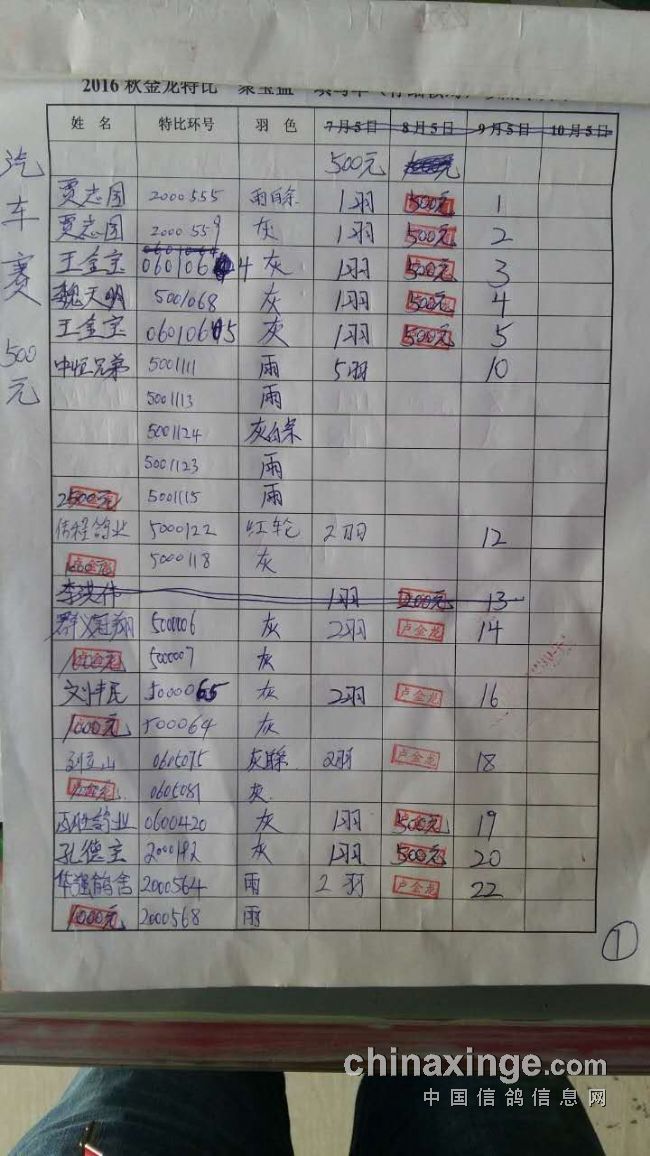 2016秋金龙特比
汽车赛 500元
姓 名 特比环号 羽 色 7月5日 8月5日 9月5日 10月5日
500元
贾志国 2000555 雨白条 1羽 500元 1
贾志国 2000559 灰 1羽 500元 2
王金宝 0601064 灰 1羽 500元 3
魏天明 5001068 灰 1羽 500元 4
王金宝 0601065 灰 1羽 500元 5
中恒兄弟 5001111 雨 5羽 10
5001113 雨
5001124 灰白条
5001123 雨
2500元 5001115 雨
伟程鸽业 5000122 红轮 2羽 12
1000元 5000118 灰
李洪伟 1羽 200元 13
群义冠翔 500006 灰 2羽 卢金龙 14
500007 灰
刘丰民 5000065 灰 2羽 卢金龙 16
1000元 500064 灰
刘立山 0605075 2羽 卢金龙 18
卢金龙 0605081 灰
鸽业 0600420 灰 1羽 500元 19
孔德宝 2000142 灰 1羽 500元 20
华强鸽舍 2000564 雨 2羽 卢金龙 22
1000元 2000568 雨
1
chinaxinge.com
中国信鸽信息网